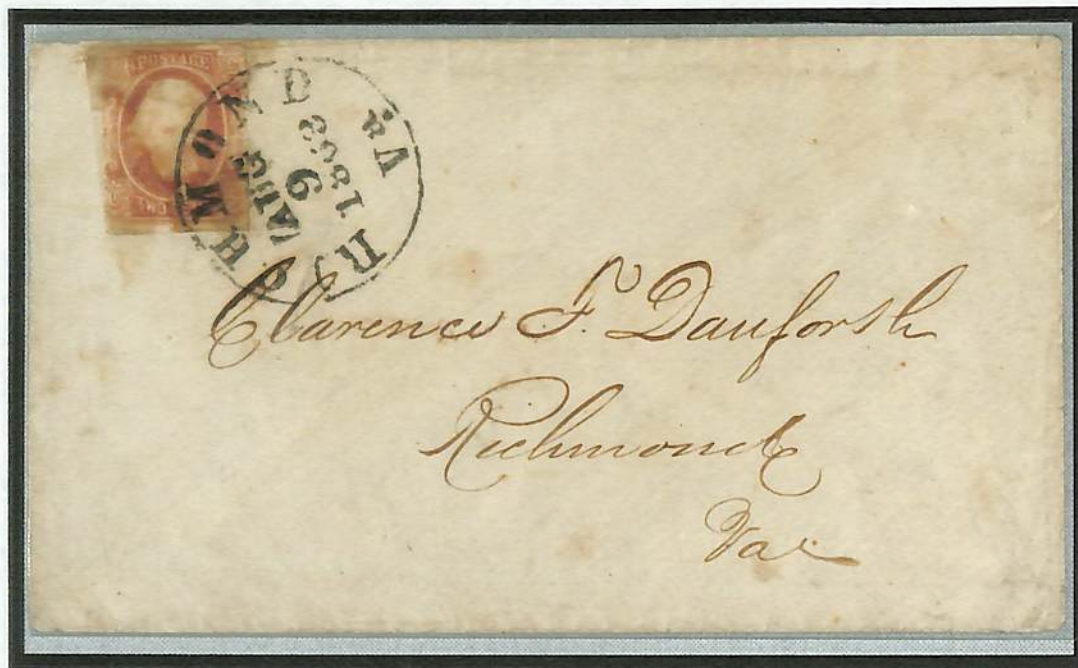 POSTAGE
TWO
RICHMOND Va.
AUG
9
1863
Clarence F. Danforth
Richmond
Va